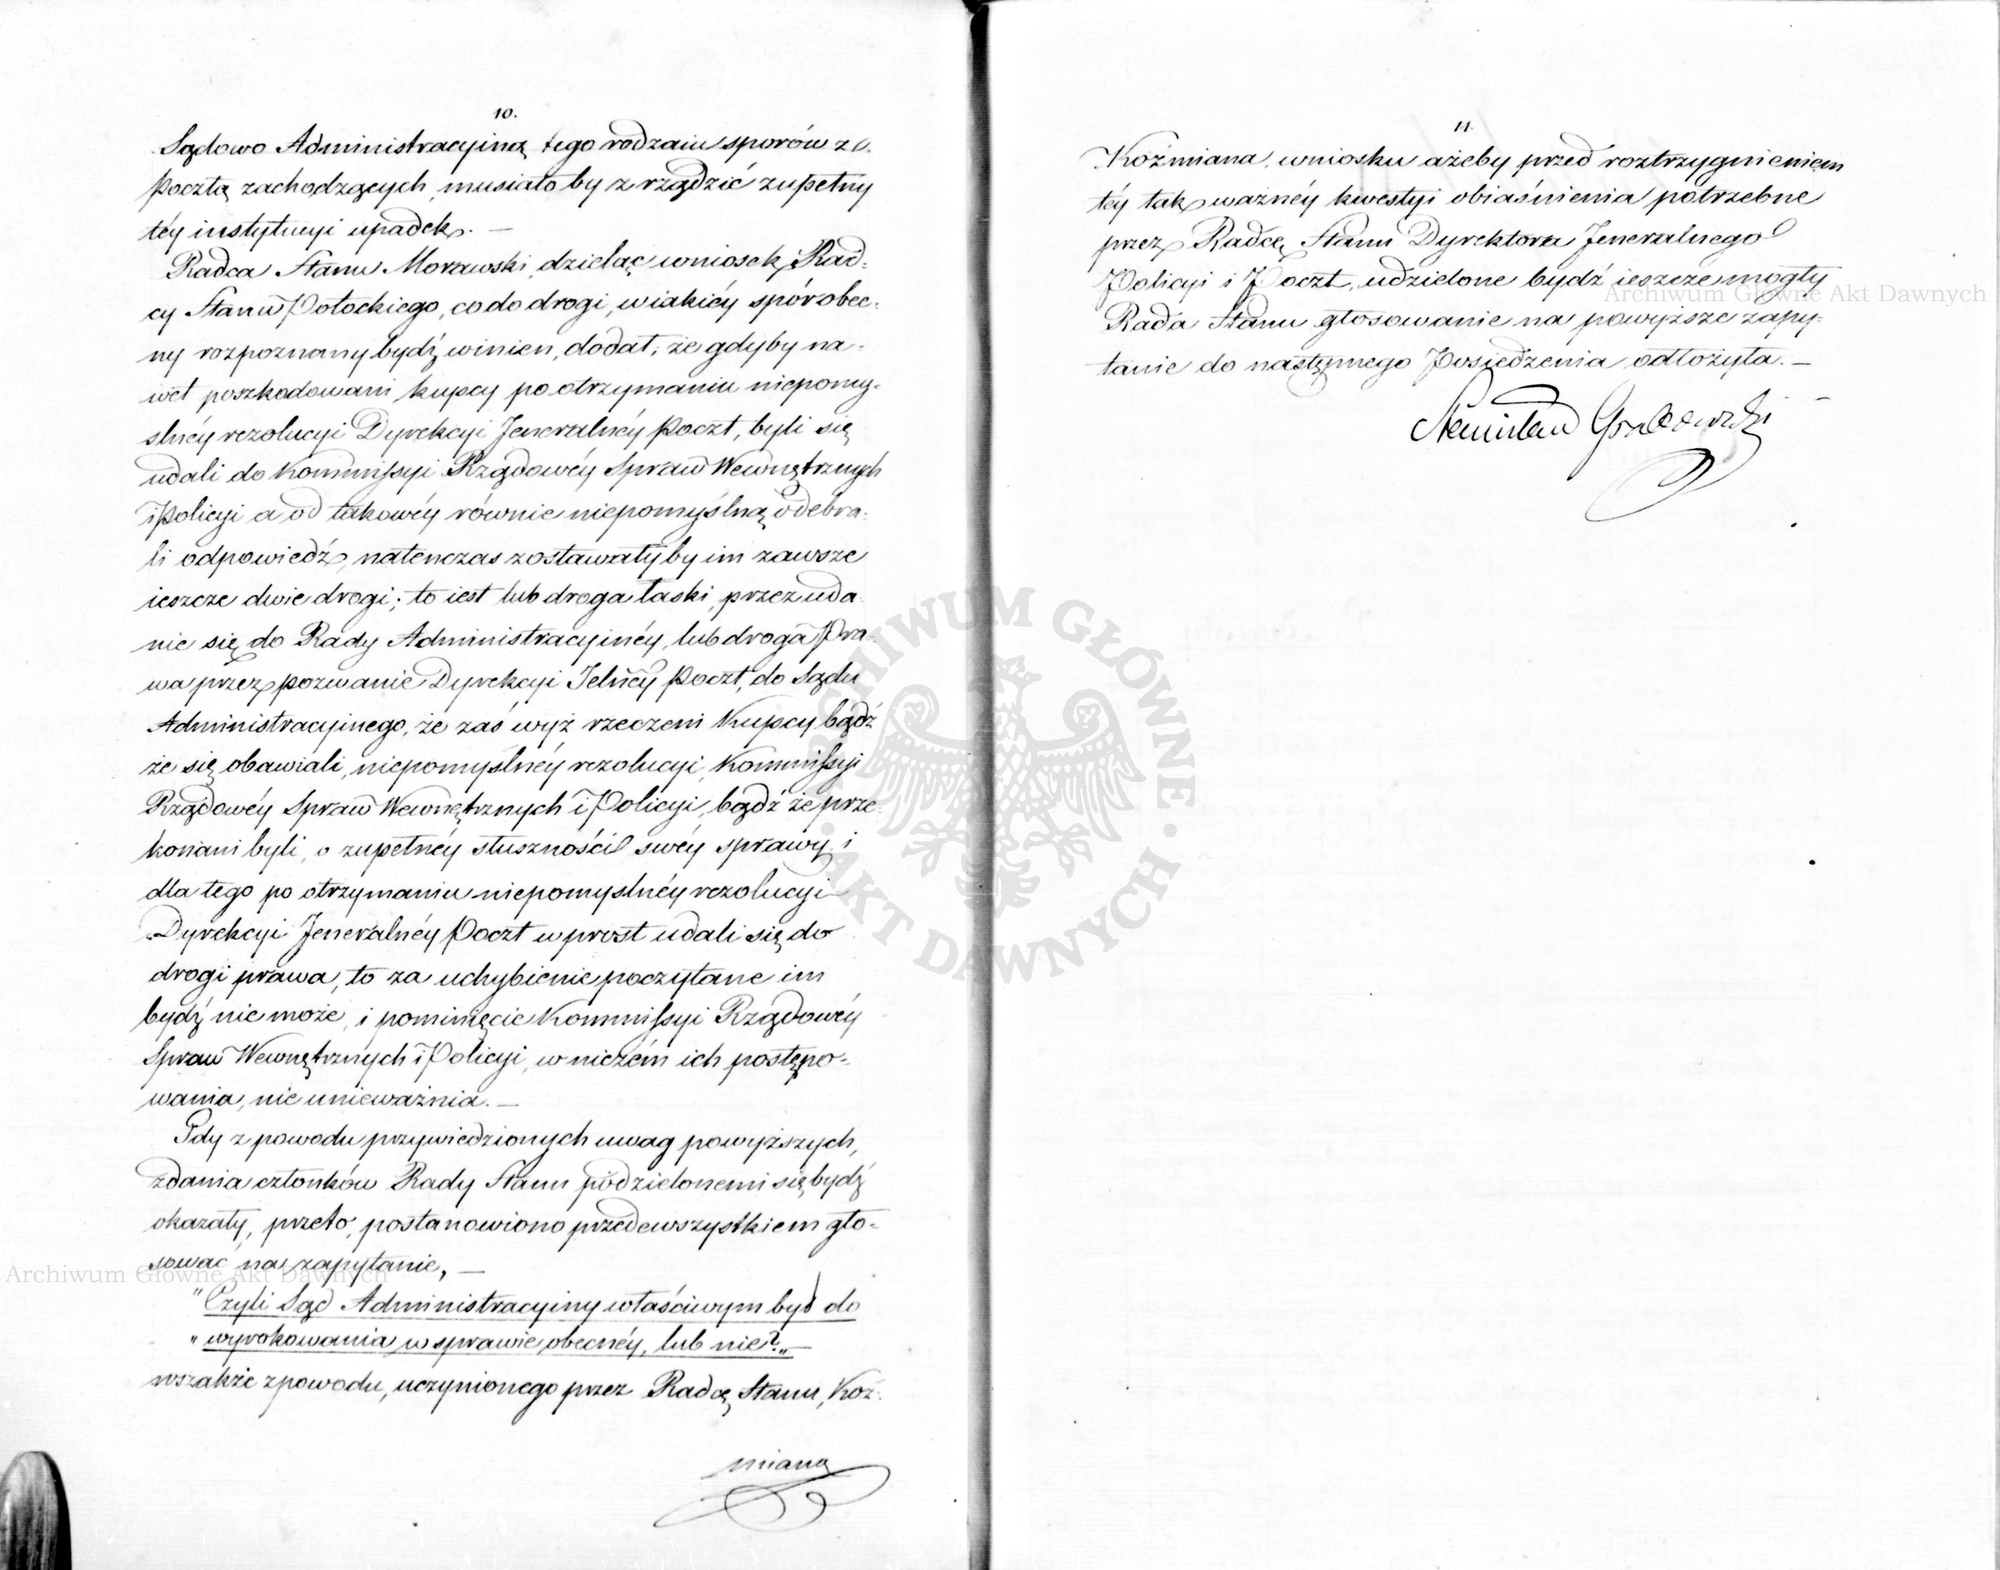 10.
Sądowo Administracyiną tego rodzaiu sporów z
Pocztą zachodzących, musiałoby zrządzić zupełny
téy instytucyi upadek. —
Radca Stanu Morawski, dzieląc wniosek Rad-
cy Stanu Potockiego, co do drogi, w iakiéy spór obec-
ny rozpoznany bydź winien, dodał; że gdyby na-
wet poszkodowani kupcy po otrzymaniu niepomy-
ślnéy rezolucyi Dyrekcyi Jeneralnéy Poczt, byli się
udali do Kommissyi Rządowéy Spraw Wewnętrznych
i Policyi a od takowéy równie niepomyślną odebra-
li odpowiedź, natenczas zostawałyby im zawsze
ieszcze dwie drogi; to iest lub droga łaski, przez uda-
nie się do Rady Administracyinéy, lub droga Pra-
wa przez pozwanie Dyrekcyi Jelnéy Poczt, do Sądu
Administracyinego, że zaś wyż rzeczeni Kupcy bądź
że się obawiali, niepomyślnéy rezolucyi, Kommissyi
Rządowéy Spraw Wewnętrznych i Policyi, bądź że prze-
konani byli, o zupełnéy słuszności swéy sprawy, i
dla tego po otrzymaniu niepomyślnéy rezolucyi
Dyrekcyi Jeneralnéy Poczt wprost udali się do
drogi prawa, to za uchybienie poczytane im
bydź nie może, i pominięcie Kommissyi Rządowéy
Spraw Wewnętrznych i Policyi, w niczém ich postępo-
wania, nie unieważnia. —
Gdy z powodu przywiedzionych uwag powyższych,
zdania członków Rady Stanu podzielonemi się bydź
okazały, przeto, postanowiono przedewszystkiem gło-
sować na zapytanie, —
"Czyli Sąd Administracyiny właściwym był do
"wyrokowania w sprawie obecnéy, lub nie?„ —
wszakże z powodu, uczynionego przez Radcę Stanu, Koź-
miana
11.
Koźmiana, wniosku ażeby przed roztrzygnieniem
téy tak ważnéy kwestyi obiaśnienia potrzebne
przez Radcę Stanu Dyrektora Jeneralnego
Policyi i Poczt, udzielone bydź ieszcze mogły
Rada Stanu głosowanie na powyższe zapy-
tanie do następnego Posiedzenia odłożyła. —
Stanisław Grabowski
ARCHIWUM GŁÓWNE · AKT DAWNYCH ·
Archiwum Główne Akt Dawnych
Archiwum Główne Akt Dawnych